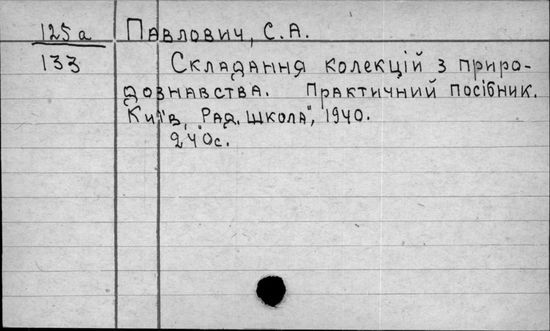 125а Павлович, С.А.
133 Складання колекцій з приро-
дознавства. Практичний посібник.
Київ, "Рад. школа", 1940.
240с.